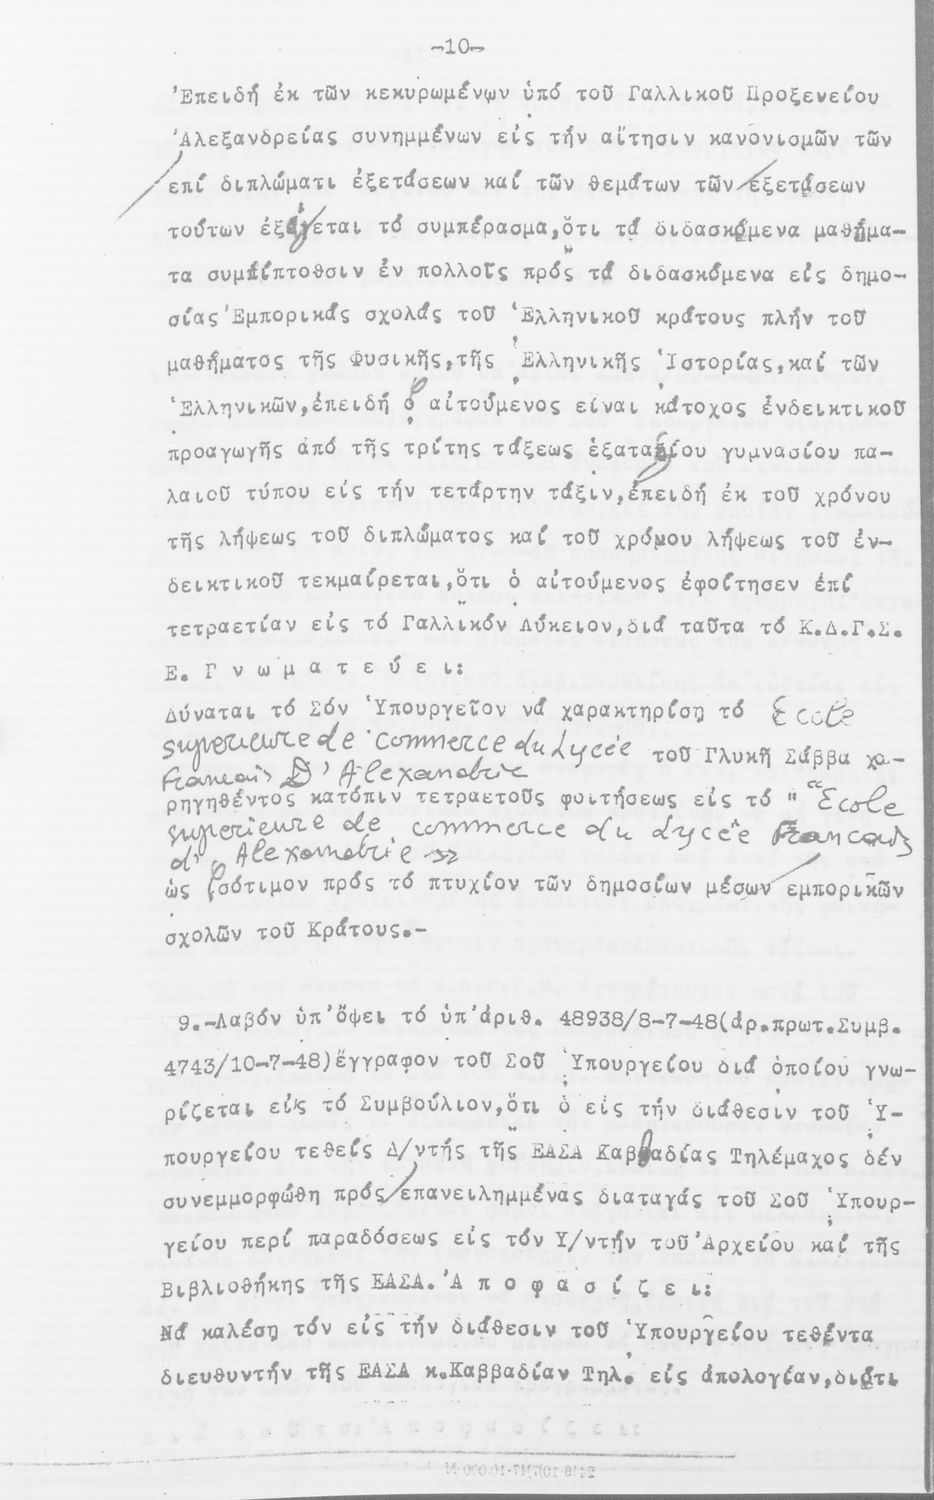 -10-
Ἐπειδή ἐκ τῶν κεκυρωμένων ὑπό τοῦ Γαλλικοῦ Προξενείου
Ἀλεξανδρείας συνημμένων εἰς τήν αἴτησιν κανονισμῶν τῶν
επί διπλώματι ἐξετάσεων καί τῶν θεμάτων τῶν εξετάσεων
τούτων ἐξάγεται τό συμπέρασμα,ὅτι τά διδασκόμενα μαθήμα-
τα συμπίπτοθσιν ἐν πολλοῖς πρός τά διδασκόμενα είς δημο-
σίας Ἐμπορικάς σχολάς τοῦ Ἑλληνικοῦ κράτους πλήν τοῦ
μαθήματος τῆς Φυσικῆς,τῆς Ἑλληνικῆς Ἱστορίας,καί τῶν
Ἑλληνικῶν,ἐπειδή ὁ αἰτούμενος εἶναι κάτοχος ἐνδεικτικοῦ
προαγωγῆς ἀπό τῆς τρίτης τάξεως ἑξαταξίου γυμνασίου πα-
λαιοῦ τύπου εἰς τήν τετάρτην τάξιν,ἐπειδή ἐκ τοῦ χρόνου
τῆς λήψεως τοῦ διπλώματος καί τοῦ χρόνου λήψεως τοῦ ἐν-
δεικτικοῦ τεκμαίρεται,ὅτι ὁ αἰτούμενος ἐφοίτησεν ἐπί
τετραετίαν εἰς τό Γαλλικόν Λύκειον,διά ταῦτα τό Κ.Δ.Γ.Σ.
Ε. Γ ν ω μ α τ ε ύ ε ι:
Δύναται τό Σόν Ὑπουργεῖον νά χαρακτηρίσῃ τό Ecole
superieure de commerce du Lycée τοῦ Γλυκῆ Σάββα χο-
Francais D' Alexandrie
ρηγηθέντος κατόπιν τετραετοῦς φοιτήσεως εἰς τό " "Ecole
superieure de commerce du Lycée Francais
d' Alexandrie »
ὡς ἰσότιμον πρός τό πτυχίον τῶν δημοσίων μέσων εμπορικῶν
σχολῶν τοῦ Κράτους.-
9.-Λαβόν ὑπ'ὄψει τό ὑπ'ἀριθ. 48938/8-7-48(ἀρ.πρωτ.Συμβ.
4743/10-7-48)ἔγγραφον τοῦ Σοῦ Ὑπουργείου διά ὁποίου γνω-
ρίζεται εἰς τό Συμβούλιον,ὅτι ὁ εἰς τήν διάθεσιν τοῦ Ὑ-
πουργείου τεθείς Δ/ντής τῆς ΕΑΣΑ Καββαδίας Τηλέμαχος δέν
συνεμμορφώθη πρός επανειλημμένας διαταγάς τοῦ Σοῦ Ὑπουρ-
γείου περί παραδόσεως εἰς τόν Υ/ντήν τοῦ Ἀρχείου καί τῆς
Βιβλιοθήκης τῆς ΕΑΣΑ. Ἀ π ο φ α σ ί ζ ε ι:
Νά καλέσῃ τόν εἰς τήν διάθεσιν τοῦ Ὑπουργείου τεθέντα
διευθυντήν τῆς ΕΑΣΑ κ.Καββαδίαν Τηλ. εἰς ἀπολογίαν,διότι